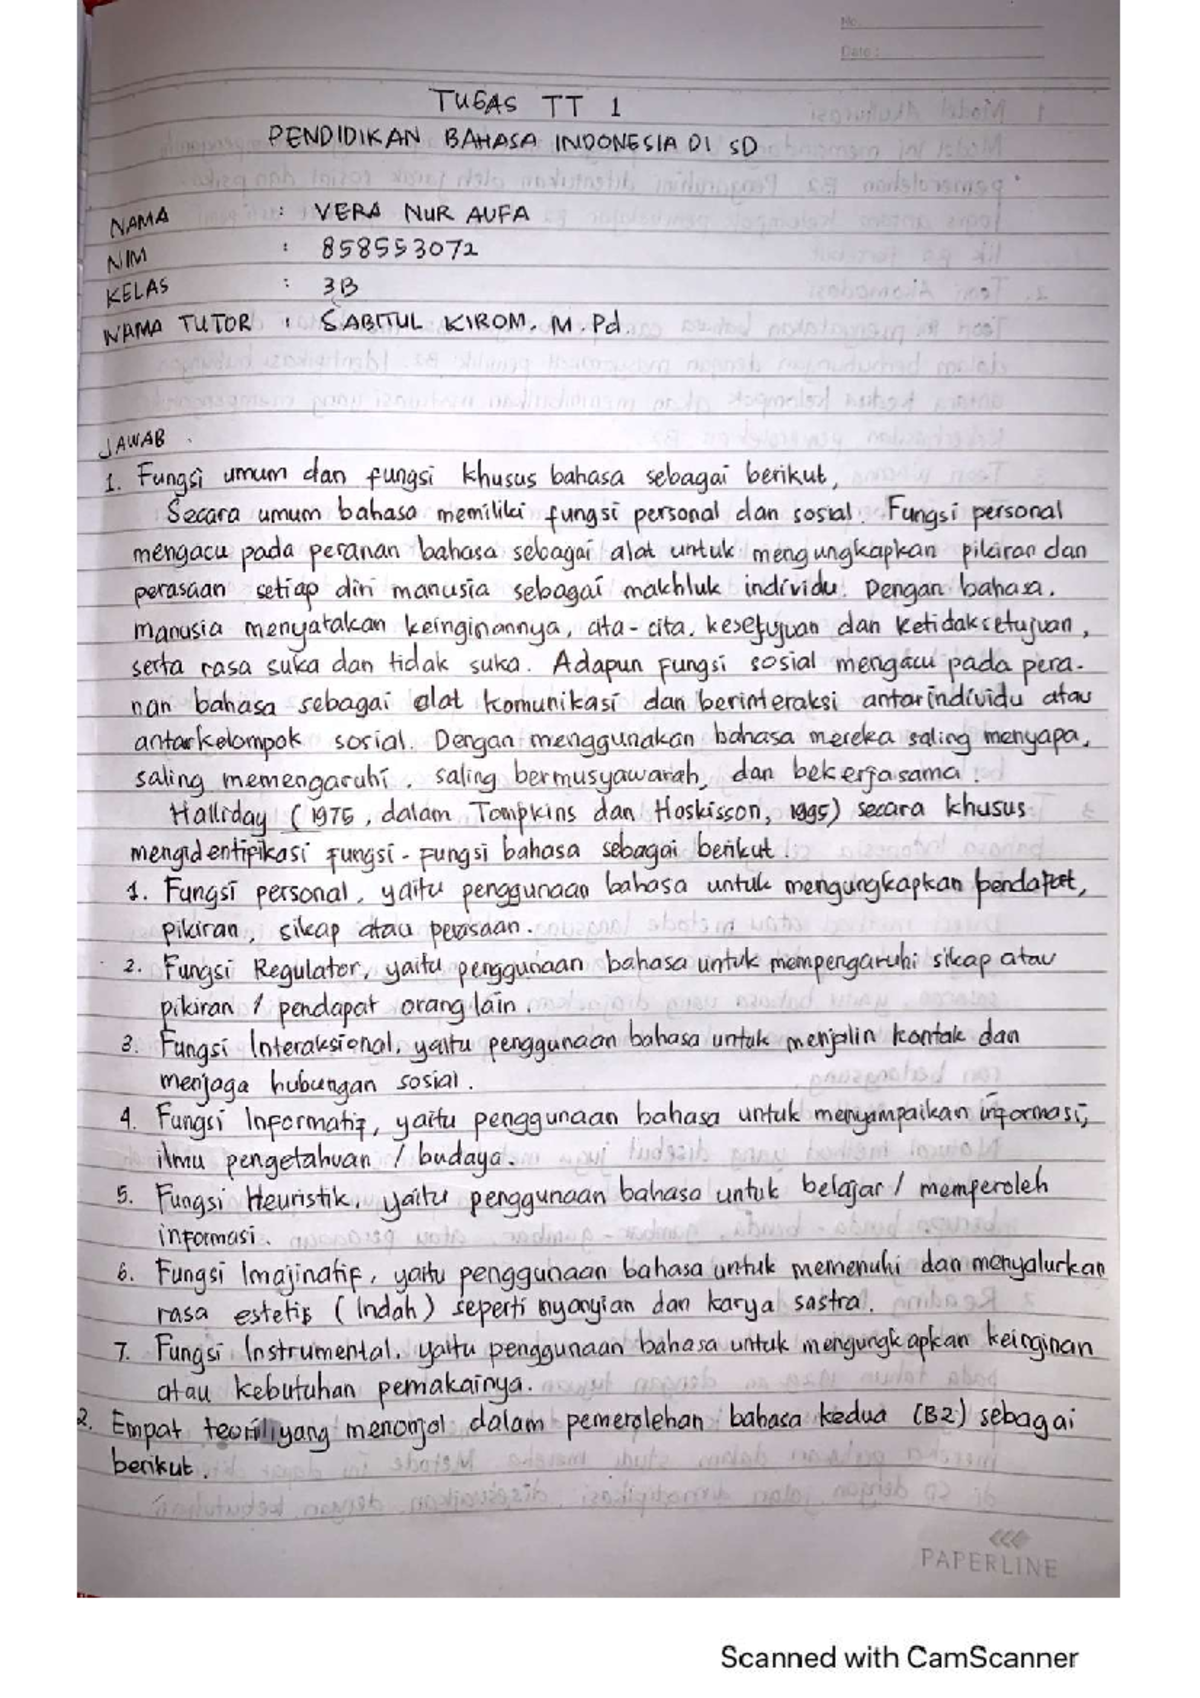 No.
Date :
TUGAS TT 1
PENDIDIKAN BAHASA INDONESIA DI SD
NAMA : VERA NUR AUFA
NIM : 858553072
KELAS : 3B
NAMA TUTOR : SABITUL KIROM, M.Pd.
JAWAB.
1. Fungsi umum dan fungsi khusus bahasa sebagai berikut,
Secara umum bahasa memiliki fungsi personal dan sosial. Fungsi personal
mengacu pada peranan bahasa sebagai alat untuk mengungkapkan pikiran dan
perasaan setiap diri manusia sebagai makhluk individu. Dengan bahasa,
manusia menyatakan keinginannya, cita-cita, kesetujuan dan ketidaksetujuan,
serta rasa suka dan tidak suka. Adapun fungsi sosial mengacu pada pera-
nan bahasa sebagai alat komunikasi dan berinteraksi antarindividu atau
antarkelompok sosial. Dengan menggunakan bahasa mereka saling menyapa,
saling memengaruhi, saling bermusyawarah, dan bekerjasama.
Halliday (1975, dalam Tompkins dan Hoskisson, 1995) secara khusus
mengidentifikasi fungsi-fungsi bahasa sebagai berikut.
1. Fungsi personal, yaitu penggunaan bahasa untuk mengungkapkan pendapat,
pikiran, sikap atau perasaan.
2. Fungsi Regulator, yaitu penggunaan bahasa untuk mempengaruhi sikap atau
pikiran / pendapat orang lain.
3. Fungsi Interaksional, yaitu penggunaan bahasa untuk menjalin kontak dan
menjaga hubungan sosial.
4. Fungsi Informatif, yaitu penggunaan bahasa untuk menyampaikan informasi,
ilmu pengetahuan / budaya.
5. Fungsi Heuristik, yaitu penggunaan bahasa untuk belajar / memperoleh
informasi.
6. Fungsi Imajinatif, yaitu penggunaan bahasa untuk memenuhi dan menyalurkan
rasa estetis (indah) seperti nyanyian dan karya sastra.
7. Fungsi Instrumental, yaitu penggunaan bahasa untuk mengungkapkan keinginan
atau kebutuhan pemakainya.
2. Empat teori yang menonjol dalam pemerolehan bahasa kedua (B2) sebagai
berikut.
PAPERLINE
Scanned with CamScanner